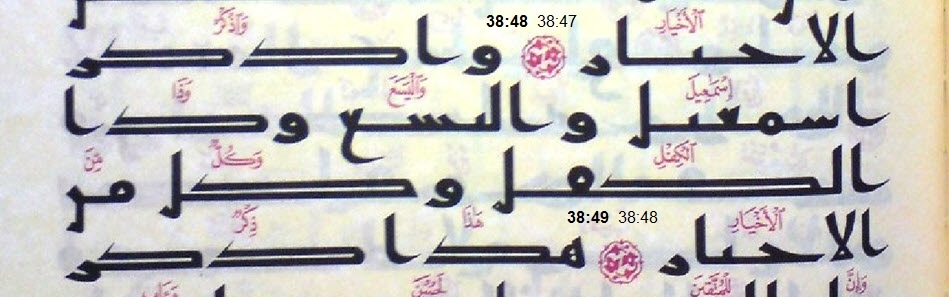 ٱلْأَخْيَارِ 38:47 38:48 وَٱذْكُرْ
الاخيار واذكر
إِسْمَٰعِيلَ وَٱلْيَسَعَ وَذَا
اسمعيل واليسع وذا
ٱلْكِفْلِ وَكُلٌّ مِّنَ
الكفل وكل من
ٱلْأَخْيَارِ 38:48 38:49 هَٰذَا ذِكْرٌ
الاخيار هذا ذكر
وَإِنَّ لِلْمُتَّقِينَ لَحُسْنَ